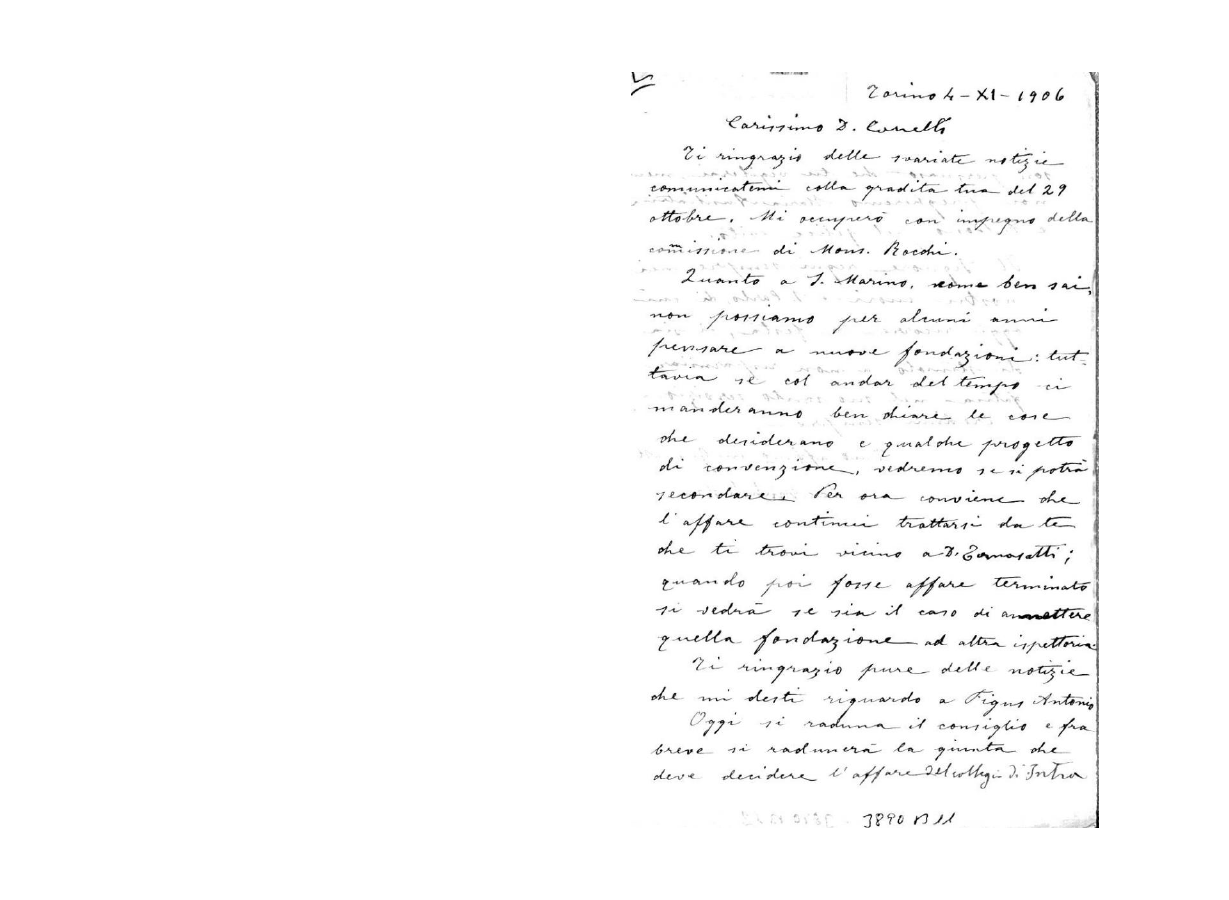 Torino 4-XI-1906
Carissimo D. Conelli
Ti ringrazio delle svariate notizie
comunicatemi colla gradita tua del 29
ottobre. Mi occuperò con impegno della
com̃issione di Mons. Rocchi.
Quanto a S. Marino, come ben sai,
non possiamo per alcuni anni
pensare a nuove fondazioni: tut-
tavia se col andar del tempo ci
manderanno ben chiare le cose
che desiderano e qualche progetto
di convenzione, vedremo se si potrà
secondare. Per ora conviene che
l'affare continui trattarsi da te
che ti trovi vicino a D.
quando poi fosse affare terminato
si vedrà se sia il caso di annettere
quella fondazione ad altra ispettoria.
Ti ringrazio pure delle notizie
che mi desti riguardo a Figus Antonio
Oggi si raduna il consiglio e fra
breve si radunerà la giunta che
deve decidere l'affare del collegio di Intra
3890 B 11